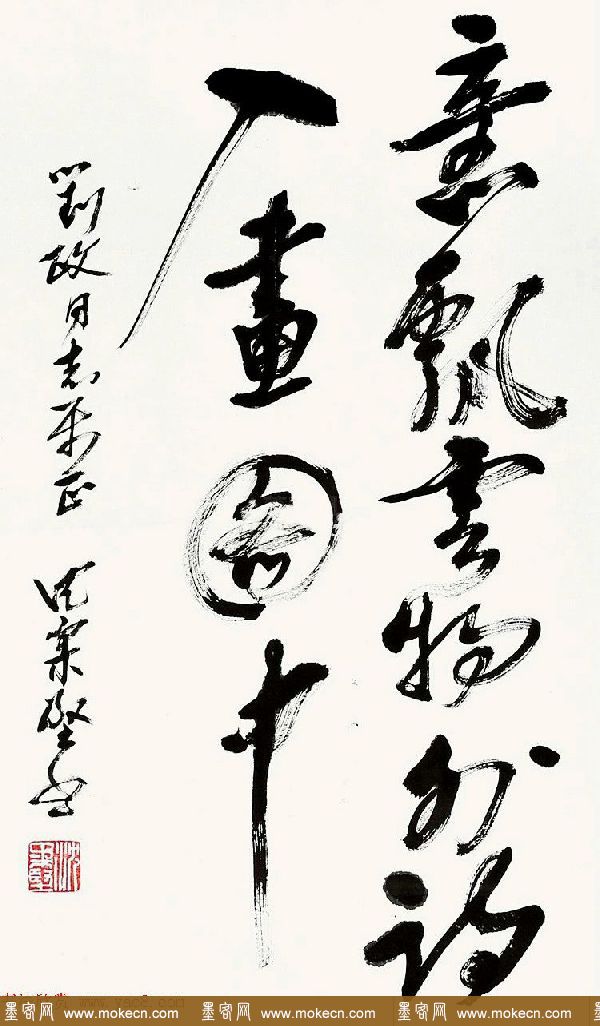 意飘云物外诗
入畫图中
劉政同志属正 沈寀堅书
墨客网 www.mokecn.com 墨客网 www.mokecn.com 墨客网 www.mokecn.com